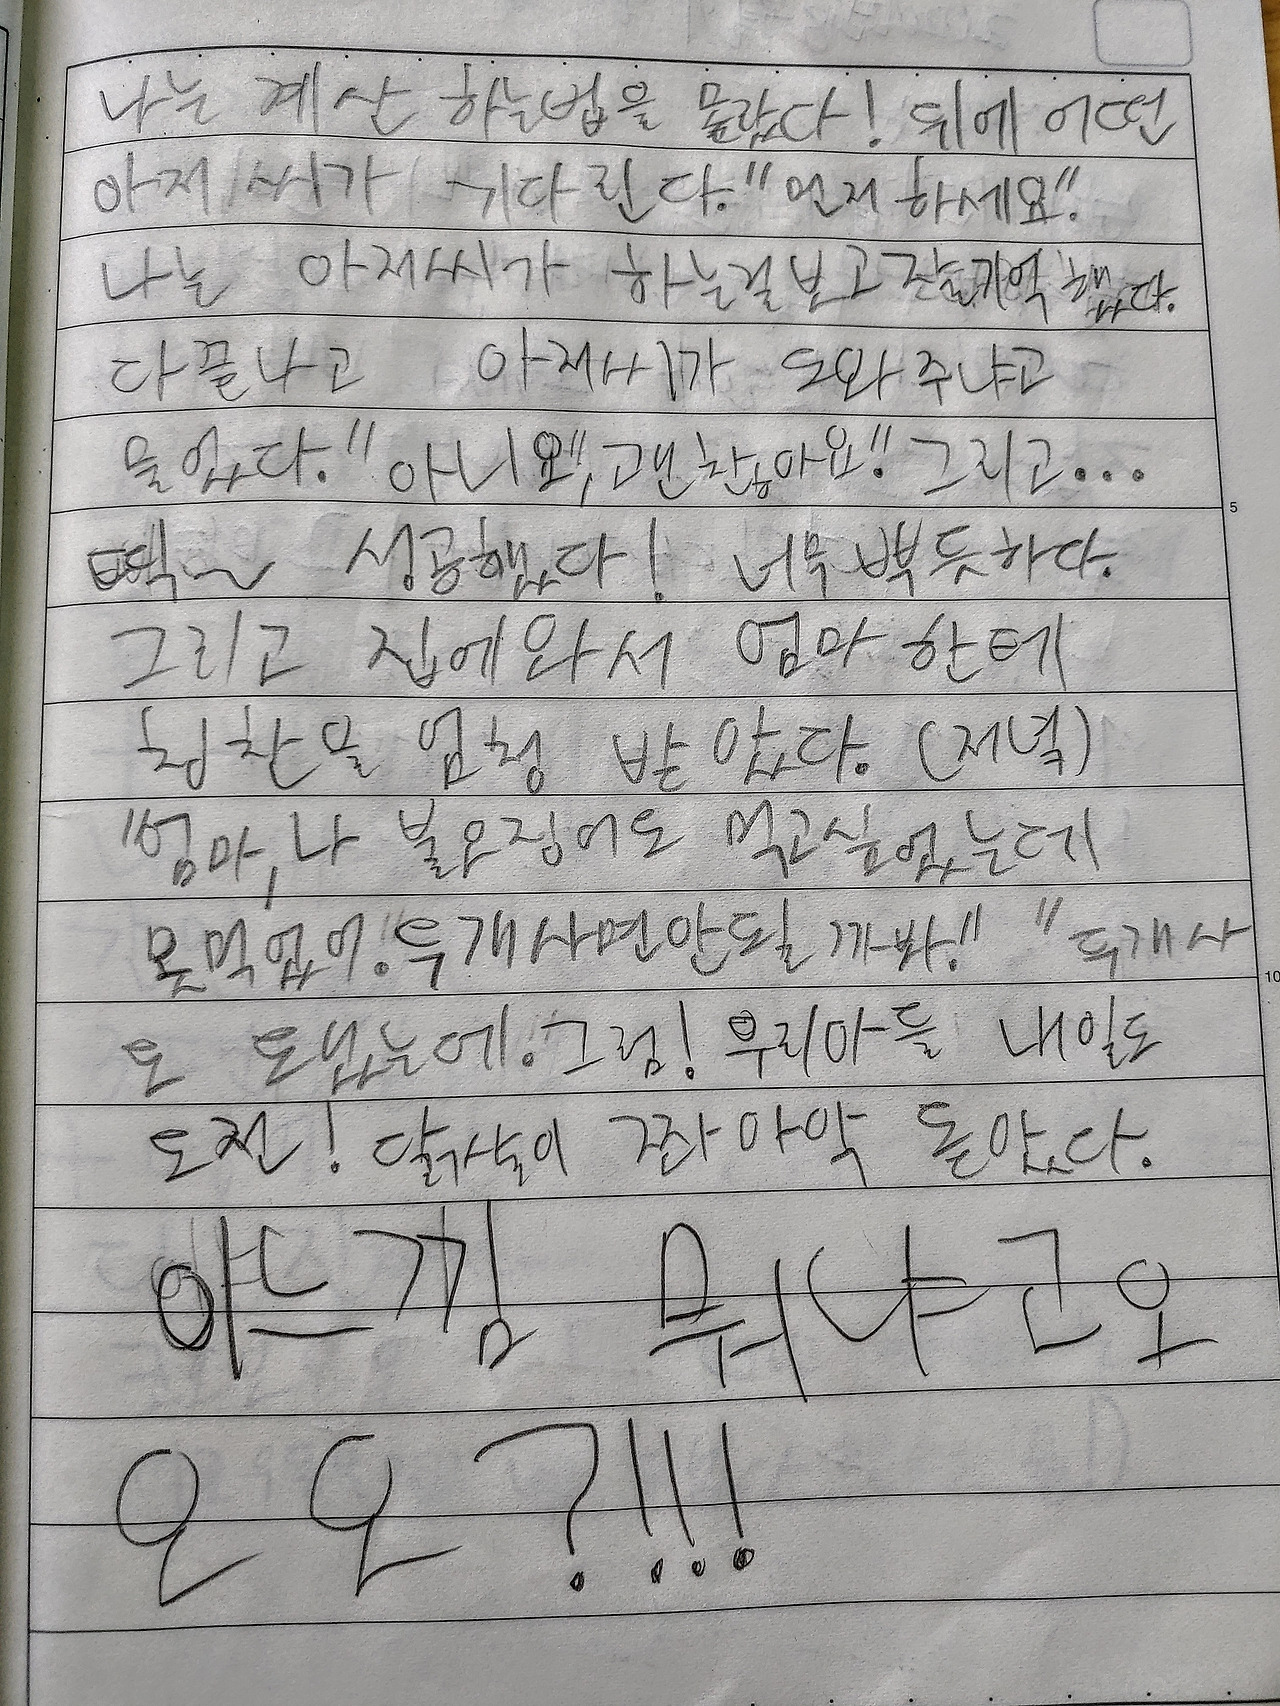 나는 계산 하는법을 몰랐다! 뒤에 어떤
아저씨가 기다린다."먼저 하세요".
나는 아저씨가 하는걸 보고 잘 기억했다.
다끝나고 아저씨가 도와주냐고
물었다."아니요","괜찮아요". 그리고...
띡~ 성공했다! 너무 뿌듯하다.
그리고 집에와서 엄마한테
칭찬을 엄청 받았다. (저녁)
"엄마, 나 불오징어도 먹고싶었는데
못먹었어. 두개사면안될까봐." "두개사
도 됐는데. 그럼! 우리아들 내일도
도전! 닭살이 쫘아악 돋았다.
아느낌 뭐냐고오
오오?!!!